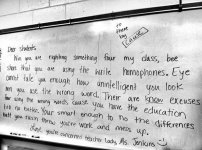 to
there
boy
(cause)
Dear students
Win you are righting something four my class, bee
shore that you are using the write homophones. Eye
can't tale you enough how unintelligent you look
you use the wrong word. Their are know excuses
four using the wrong words cause you have the education
too no better. Your smart enough to no the differences
butt you knead to you're work and mess up.
Love, you're concerned teacher lady, Ms. Jenkins